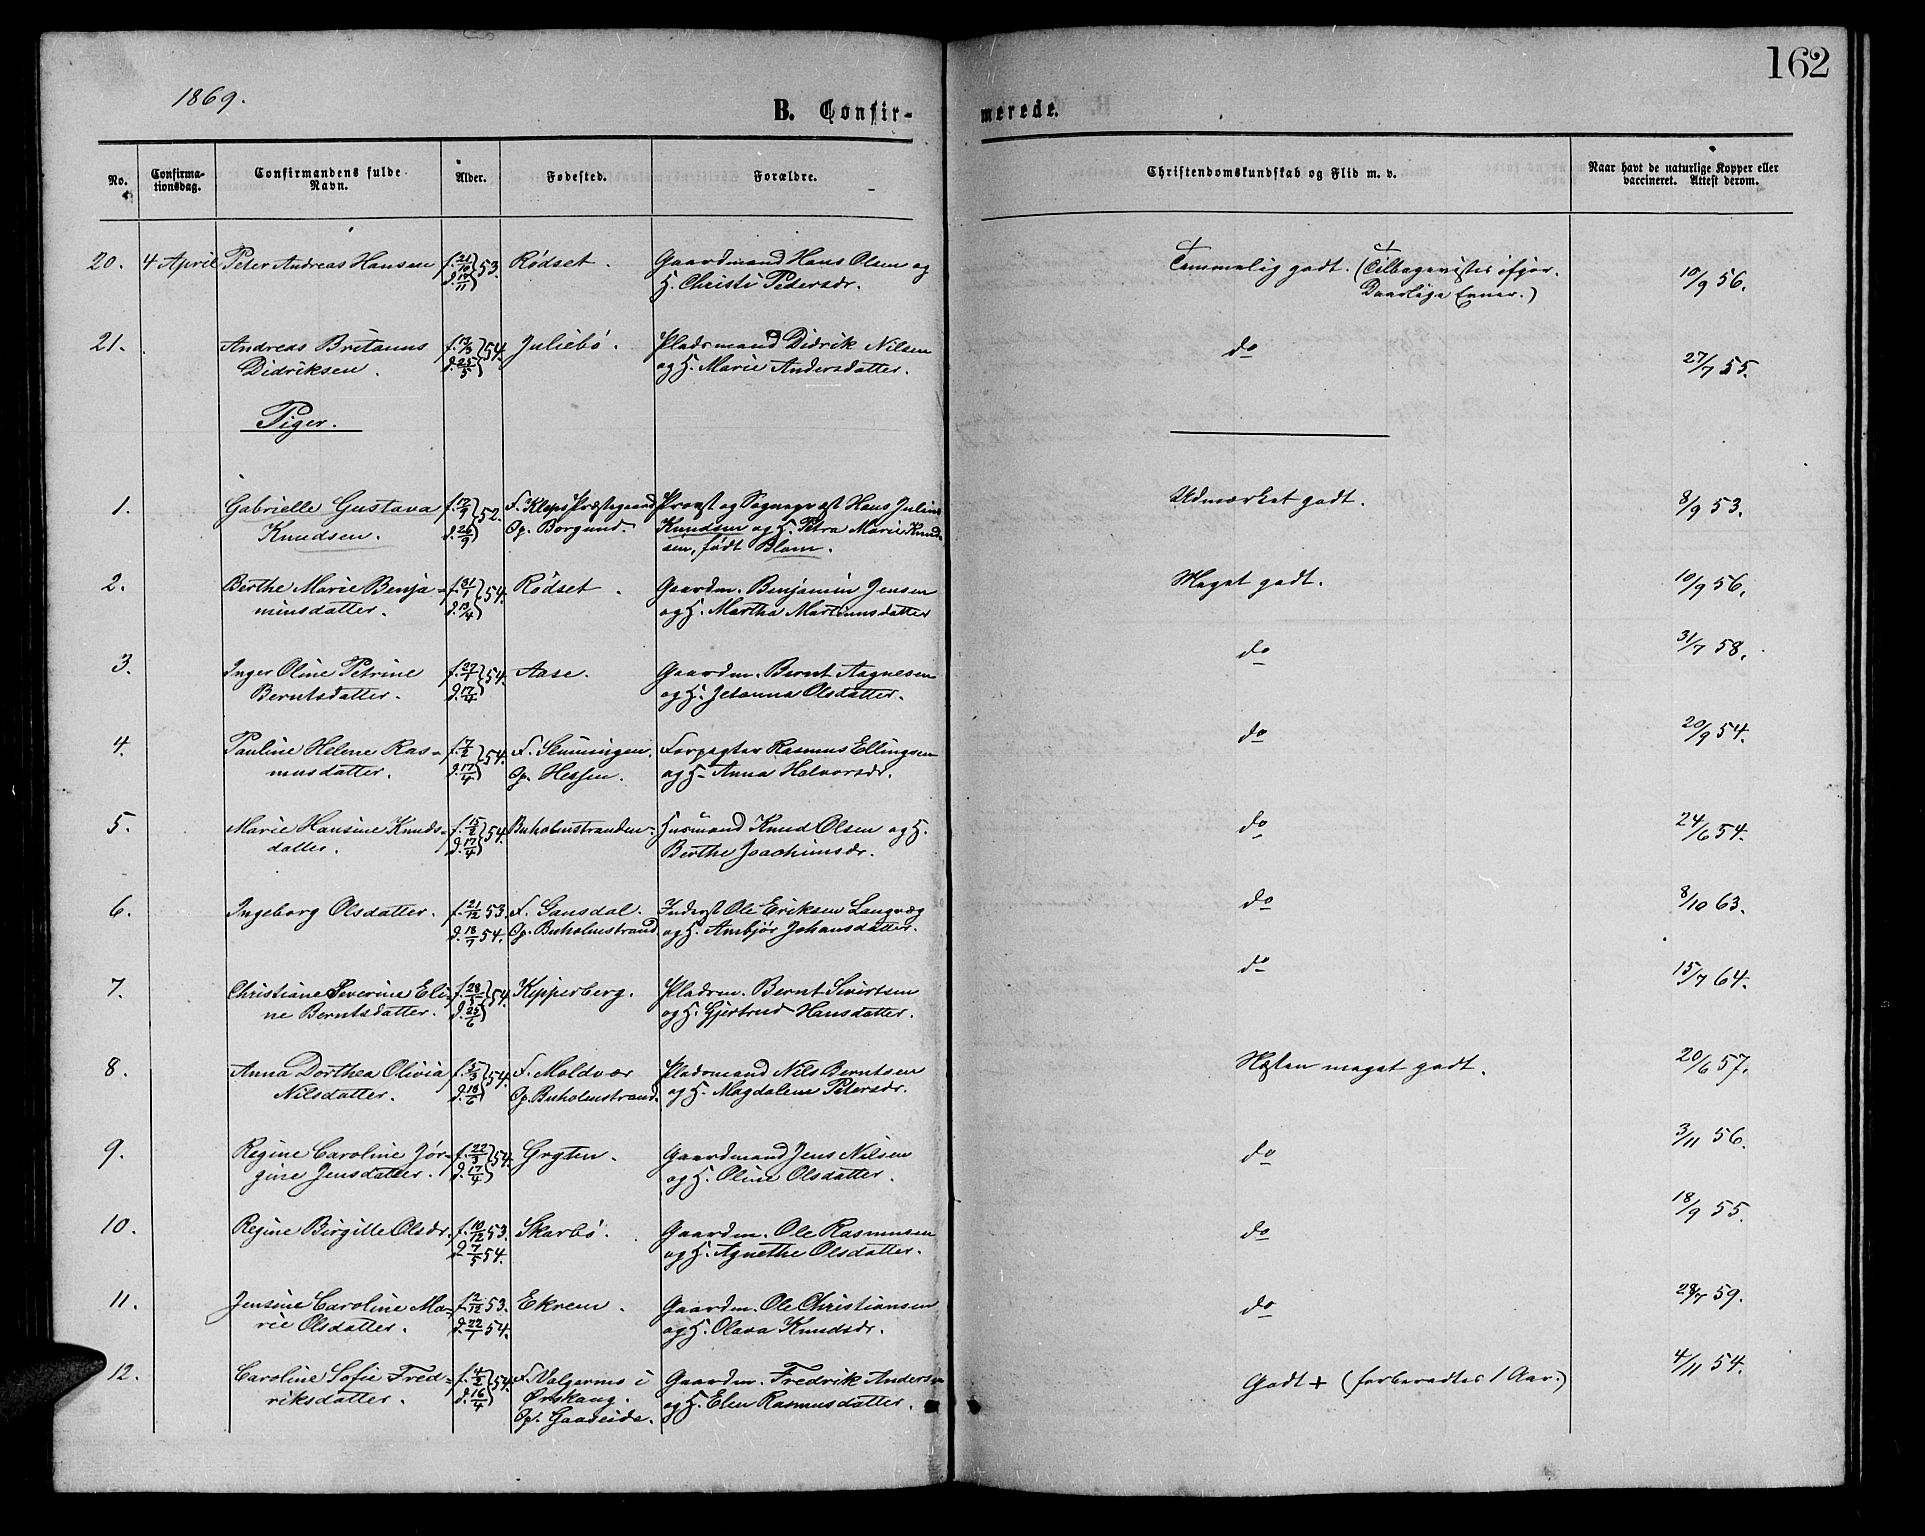 162
1869.
B. Confirmerede.
No. Confirmationsdag. Confirmandens fulde Navn. Alder. Fødested. Forældre. Christendomskundskab og Flid m. v. Naar havt de naturlige Kopper eller vaccineret. Attest derom.
20. 4 April Peter Andreas Hansen f. 21/10 53. Rødset. Gaardmand Hans Olsen og Tammelig godt. (Tilbageviistes ifjor. 10/9 56.
d. 19/11 H. Christi Pedersdr. Daarlige Evner.)
21. Andreas Britanus f. 13/3 54. Juliebø. Pladsmand Didrik Nilsen do 27/7 55.
Didriksen. d. 25/5 og H. Marie Andersdatter.
Piger.
1. Gabrielle Gustava f. 17/9 52. F. Kleps Præstegaard Provst og Sognepræst Hans Julius Udmærket godt. 8/9 53.
Knudsen. d. 26/9 Op. Borgund. Knudsen og H. Petra Marie Knud-
sen, født Blom.
2. Birthe Marie Benja- f. 31/1 54. Rødset. Gaardm. Benjamin Jensen Meget godt. 10/9 56.
minsdatter. d. 13/4 og H. Martha Martinusdatter
3. Inger Oline Petrine f. 27/1 54. Aase. Gaardm. Bernt Aagnesen do 31/7 58.
Berntsdatter. d. 17/4 og H. Johanna Olsdatter.
4. Pauline Helene Ras- f. 7/2 54. F. Slinningen. Forpagter Rasmus Ellingsen do 20/9 54.
musdatter. d. 17/4 Op. Hessen. og H. Anna Halvorsdr.
5. Marie Hansine Knuds- f. 15/2 54. Buholmstranden. Husmand Knud Olsen og H. do 24/6 54.
datter. d. 17/4 Berthe Joachimsdr.
6. Ingeborg Olsdatter. f. 21/12 53. F. Gausdal. Inderst Ole Eriksen Langvæg do 8/10 63.
d. 18/7 54. Op. Buholmstrand og H. Ambjør Johansdatter.
7. Christiane Severine Eli- f. 28/3 54. Kipperberg. Pladsm. Bernt Sivertsen do 15/7 64.
ne Berntsdatter. d. 25/6 og H. Gjertrud Hansdatter.
8. Anna Dorthea Olivia f. 5/3 54. F. Moldvær Pladsmand Nils Berntsen Næsten meget godt. 20/6 57.
Nilsdatter. d. 18/6 Op. Buholmstrand. og H. Magdalene Petersdr.
9. Regine Caroline Jør- f. 22/3 54. Grytten. Gaardmand Jens Nilsen do 3/11 56.
gine Jensdatter. d. 17/4 og H. Oline Olsdatter.
10. Regine Birgitte Olsdr. f. 10/12 53. Skarbø. Gaardm. Ole Rasmusen do 18/9 55.
d. 7/5 54. og H. Agnethe Olsdatter.
11. Jensine Caroline Ma- f. 12/12 53. Ekrem. Gaardm. Ole Christiansen do 28/7 59.
rie Olsdatter. d. 22/1 54. og H. Olava Knudsdr.
12. Caroline Sofie Fred- f. 4/2 54. F. Valgermo i Gaardm. Fredrik Andersen Godt + (forberedtes 1 Aar.) 4/11 54.
riksdatter. d. 16/4 Ørskoug. og H. Elen Rasmusdatter.
Op. Gaaseide.